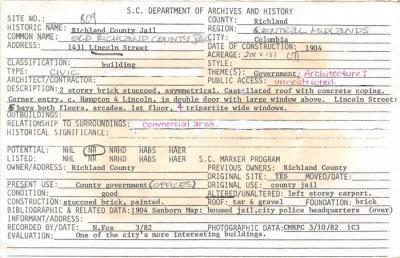 S.C. DEPARTMENT OF ARCHIVES AND HISTORY
SITE NO.: 809 COUNTY: Richland
HISTORIC NAME: Richland County Jail REGION: CENTRAL MIDLANDS
COMMON NAME: OLD RICHLAND COUNTY JAIL CITY: Columbia
ADDRESS: 1431 Lincoln Street DATE OF CONSTRUCTION: 1904
ACREAGE: 208 x 151
CLASSIFICATION: building STYLE:
TYPE: CIVIC THEME(S): Government; Architecture?
ARCHITECT/CONTRACTOR: PUBLIC ACCESS: unrestricted.
DESCRIPTION: 2 storey brick stuccoed, asymmetrical. Castellated roof with concrete coping.
Corner entry, c. Hampton & Lincoln, is double door with large window above. Lincoln Street:
6 bays both floors, arcades. 1st floor, 4 tripartite wide windows.
OUTBUILDINGS:
RELATIONSHIP TO SURROUNDINGS: commercial area.
HISTORICAL SIGNIFICANCE:
POTENTIAL: NHL NR NRHD HABS HAER
LISTED: NHL NR NRHD HABS HAER S.C. MARKER PROGRAM
OWNER/ADDRESS: Richland County PREVIOUS OWNERS: Richland County
ORIGINAL SITE: YES MOVED/DATE:
PRESENT USE: County government (OFFICES) ORIGINAL USE: county jail
CONDITION: good ALTERED/UNALTERED: left storey carport.
CONSTRUCTION: stuccoed brick, painted. ROOF: tar & gravel FOUNDATION: brick
BIBLIOGRAPHIC & RELATED DATA: 1904 Sanborn Map: housed jail, city police headquarters (over)
INFORMANT/ADDRESS:
RECORDED BY/DATE: N.Fox 3/82 PHOTOGRAPHIC DATA: CMRPC 3/10/82 1C3
EVALUATION: One of the city's more interesting buildings.